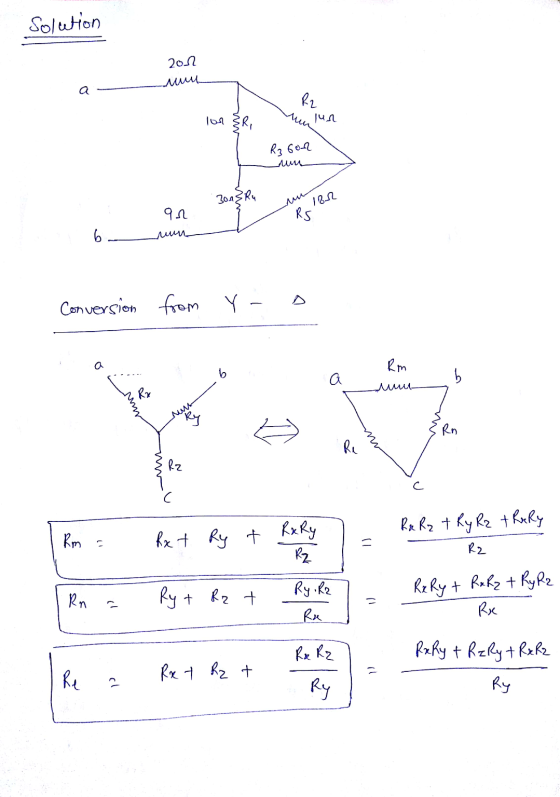 Solution
20Ω
a
R2
14Ω
10Ω R1
R3 60Ω
30Ω R4
18Ω
R5
9Ω
b
Conversion from Y - Δ
a
b
Rx
Ry
Rz
c
Rm
a
b
Rl
Rn
c
Rm = Rx + Ry + RxRy/Rz = RxRz + RyRz + RxRy/Rz
Rn = Ry + Rz + Ry.Rz/Rx = RxRy + RxRz + RyRz/Rx
Rl = Rx + Rz + RxRz/Ry = RxRy + RzRy + RxRz/Ry